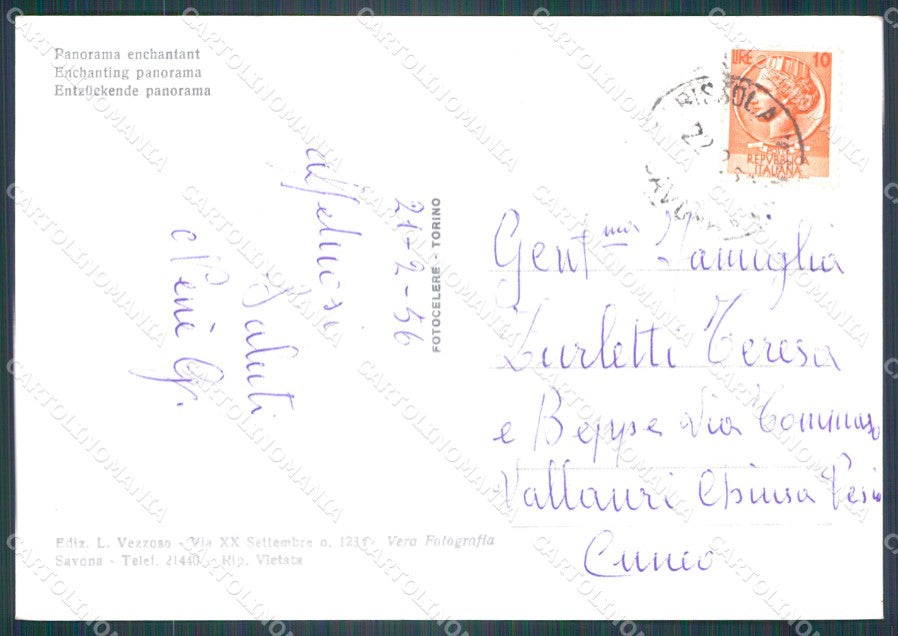 Panorama enchantant
Enchanting panorama
Entzückende panorama
21-2-56
affettuosi
Saluti
Ediz. L. Vezzoso - Via XX Settembre n. 123
Vera Fotografia
Savona - Telef. 21440 - Rip. Vietata
FOTOCELERE - TORINO
LIRE 10
REPVBBLICA
ITALIANA
Gent.ma Famiglia
Zurletti Teresa
e Beppe Via Tommaso
Vallauri Chiusa Pesio
Cuneo
CARTOLINOMANIA